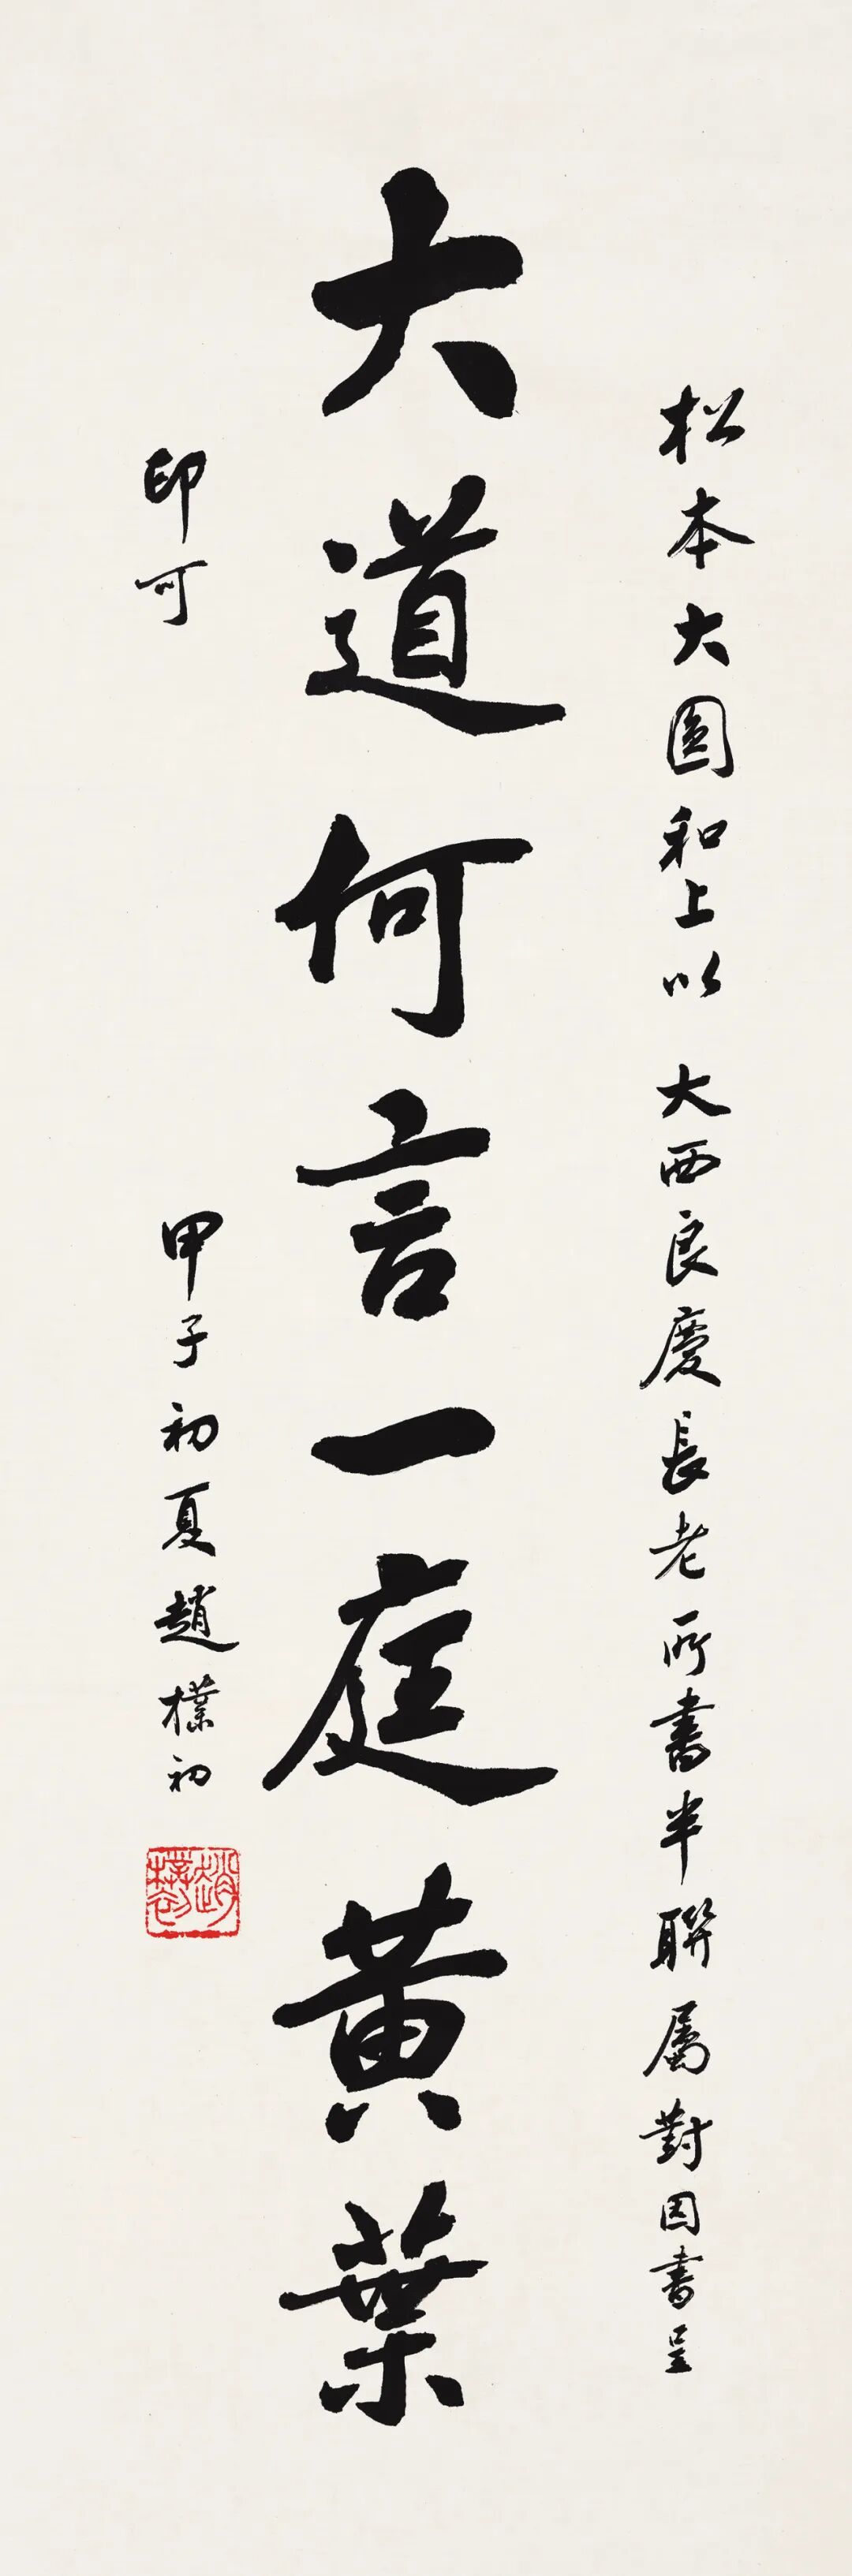 松本大圓和上以 大西良慶長老所書半聯屬對因書呈
大道何言一庭黃葉
印可
甲子初夏趙樸初
趙樸初